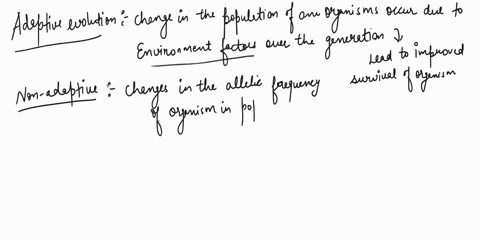 Adeptive evolution :- change in the population of any organisms occur due to
Environment factors over the generation ↓
Lead to improved
survival of organism
Non-adeptive :- changes in the allelic frequency
of organism in pop